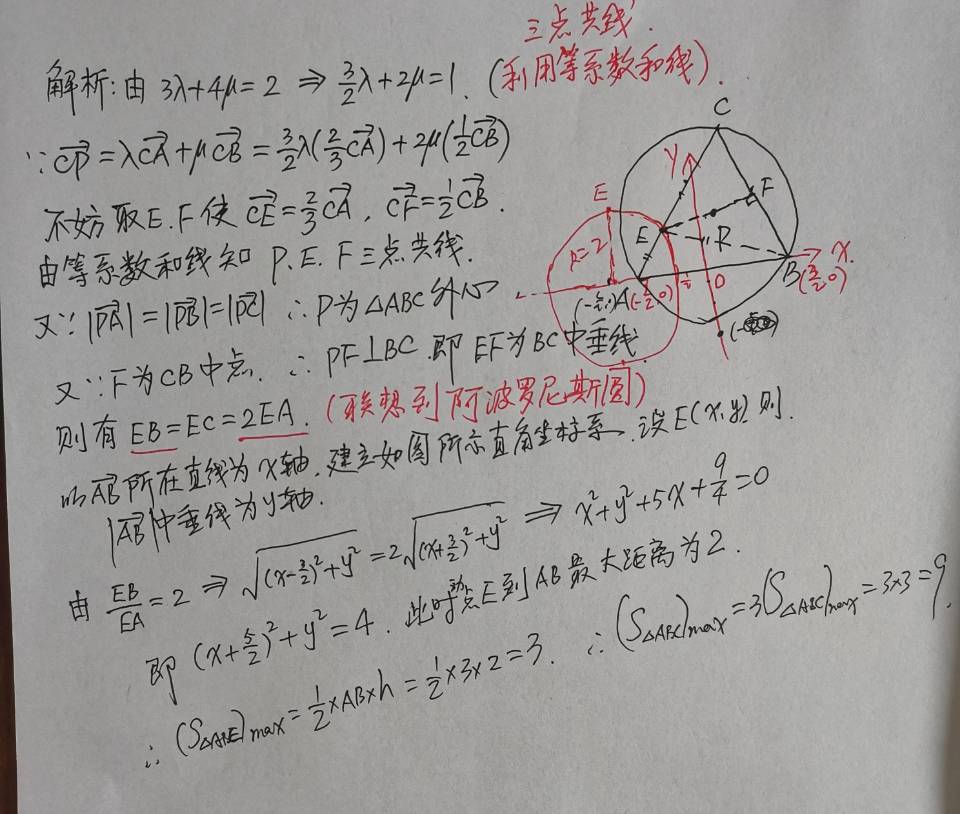 三点共线
解析:由 3λ+4μ=2 ⇒ 3/2λ+2μ=1. (利用等系数和线).
∵ CP=λCA+μCB=3/2λ(2/3CA)+2μ(1/2CB)
不妨取E.F使 CE=2/3CA, CF=1/2CB.
由等系数和线知 P.E.F三点共线.
又∵|PA|=|PB|=|PC| ∴P为△ABC外心
又∵F为CB中点. ∴PF⊥BC 即EF为BC中垂线
则有 EB=EC=2EA. (联想到阿波罗尼斯圆)
以AB所在直线为x轴, 建立如图所示直角坐标系, 设E(x,y)则.
|AB|中垂线为y轴.
由 EB/EA=2 ⇒ √((x-3/2)²+y²)=2√((x+3/2)²+y²) ⇒ x²+y²+5x+9/4=0
即 (x+5/2)²+y²=4. 此时动点E到AB最大距离为2.
∴(S△ABE)max=1/2×AB×h=1/2×3×2=3. ∴(S△ABC)max=3(S△ABE)max=3×3=9.
C
y
F
E
E
R=2
P
x
A(-3/2,0)
O
B(3/2,0)